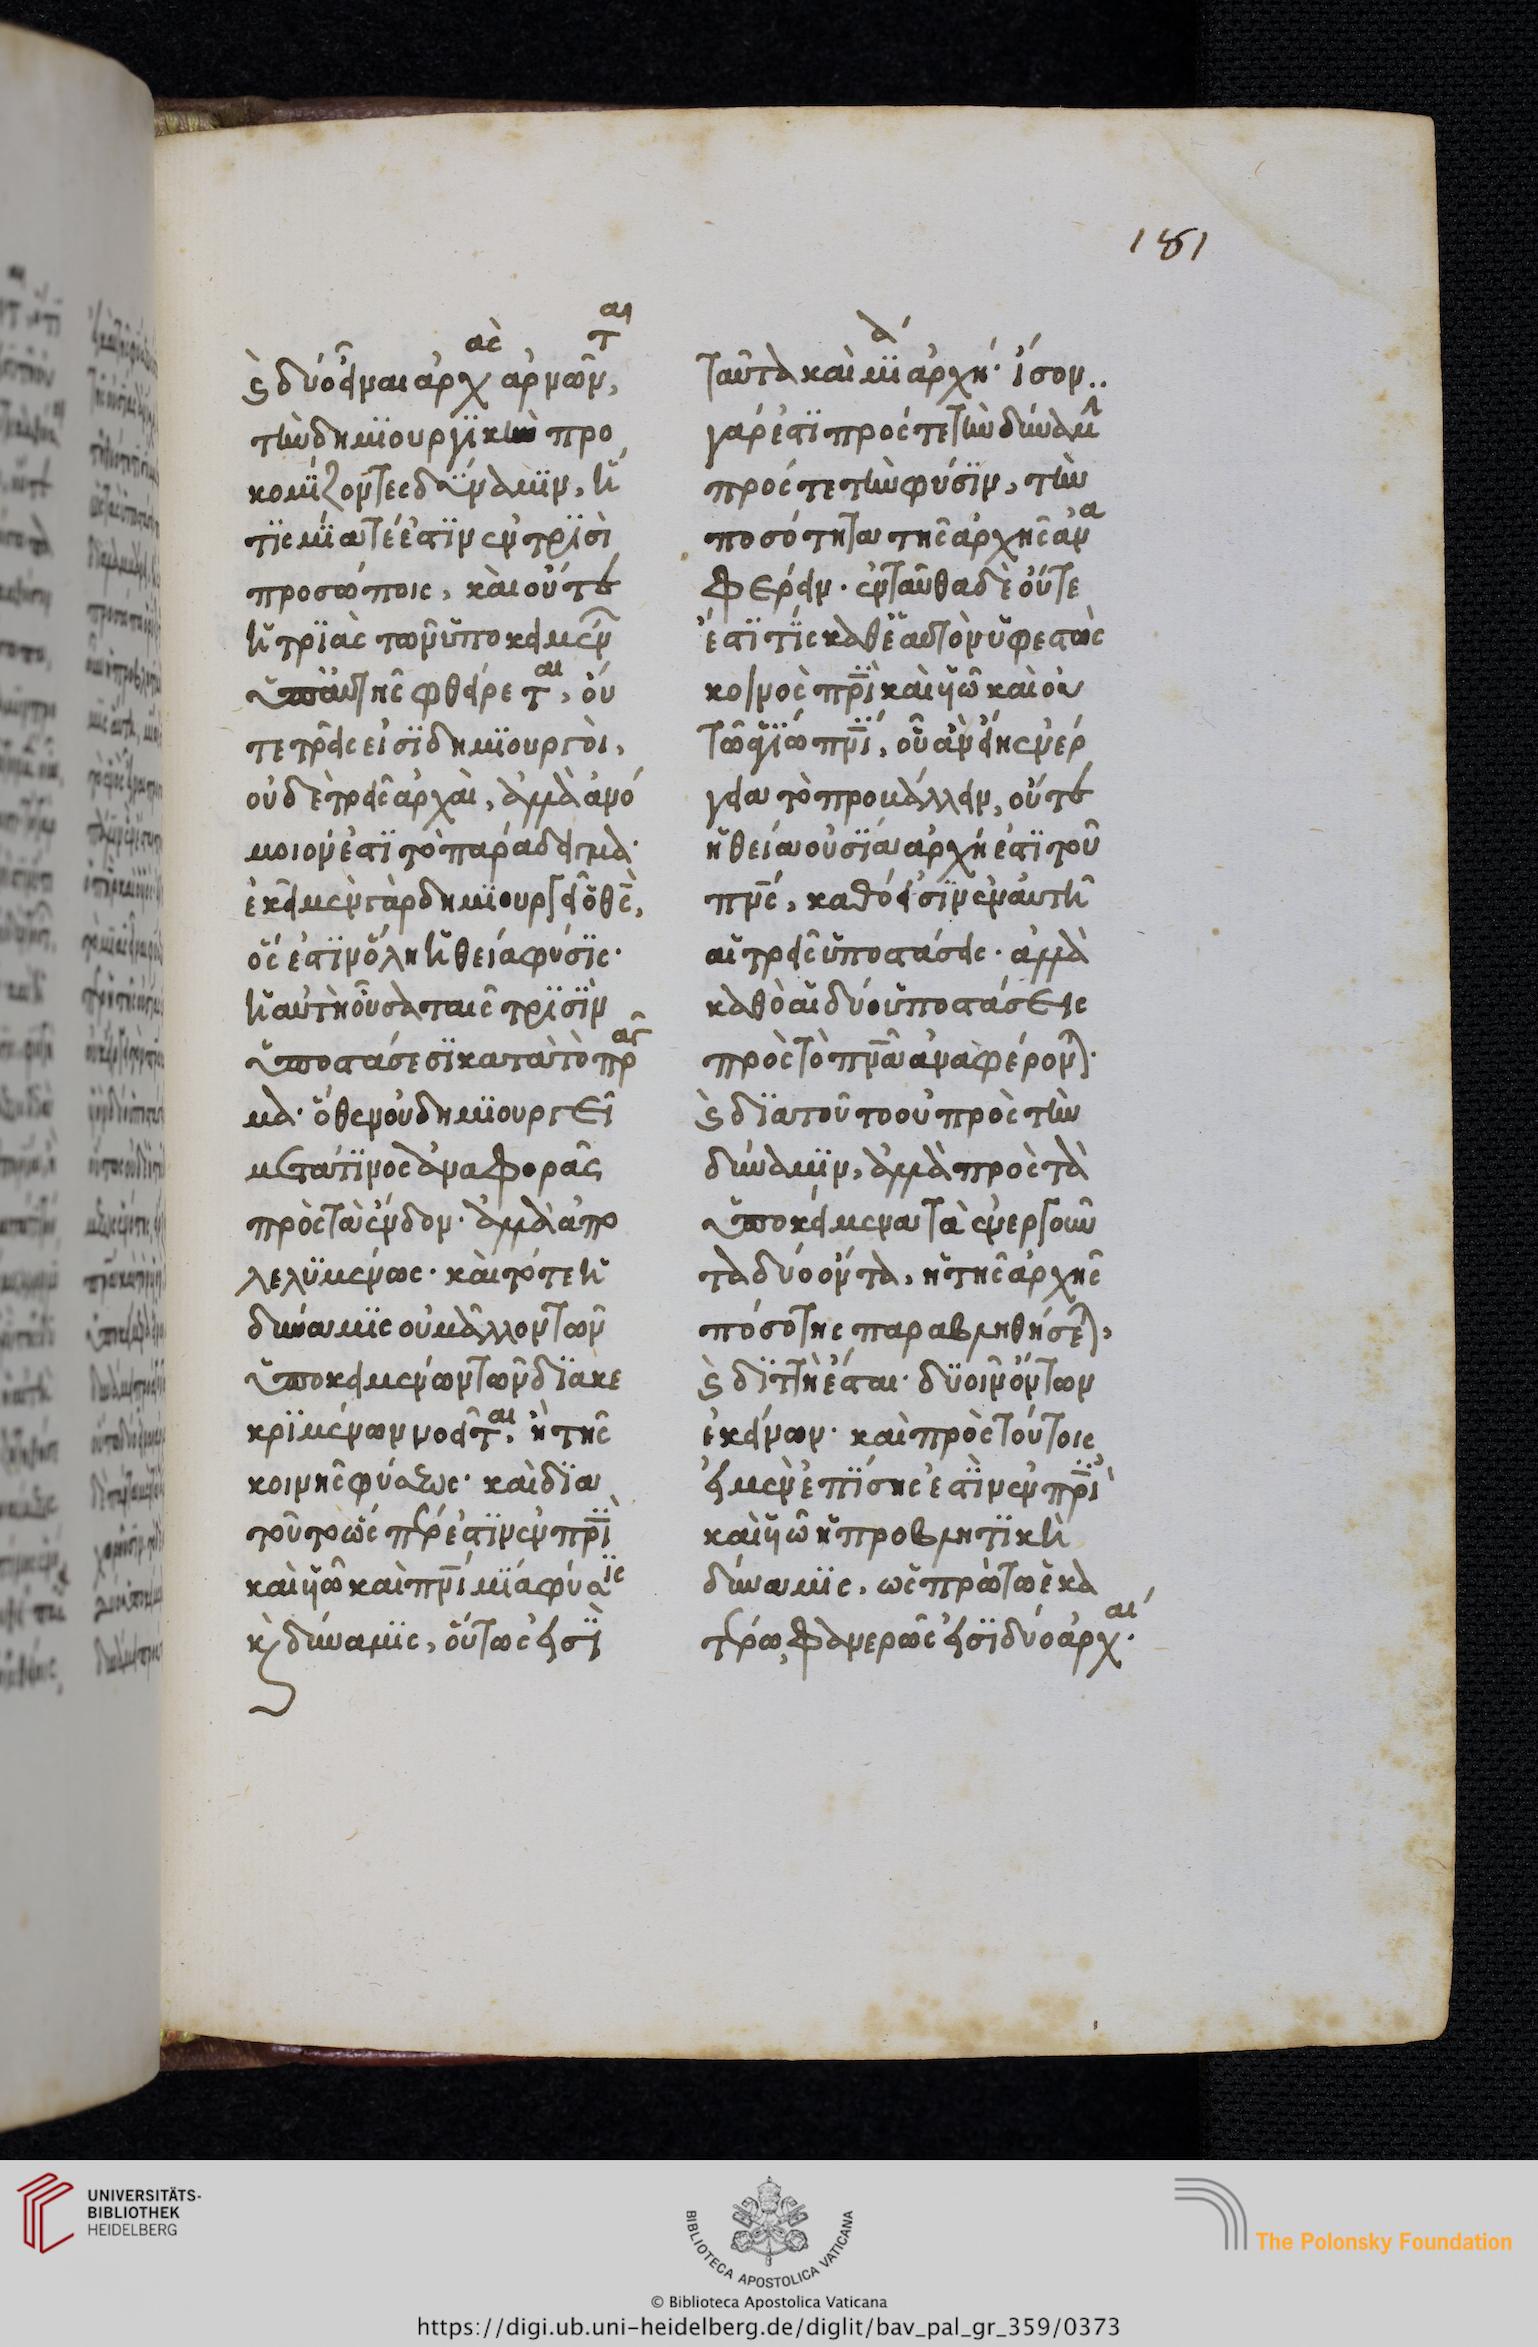 181
ϛ δύο εἶναι ἀρχὰς ἀρνῶνται,
τὴν δημϊουργϊκὴν προ
κομίζοντες δύναμϊν, ἥ
τϊς μία τέ ἐστϊν ἐν τρϊσὶ
προσώποις, καὶ οὔτε
ἡ τρϊὰς τῶν ὑποκειμένων
ὑπ' αὐτῆς φθείρεται, οὔ
τε τρεῖς εἰσὶ δημϊουργοὶ,
οὐδὲ τρεῖς ἀρχαὶ, ἀλλὰ ἀνό
μοιον ἐστὶ τὸ παράδειγμα·
ἐκεῖ μὲν γὰρ δημϊουργεῖ ὁ θεὸς,
ὅς ἐστϊν ὅλη ἡ θεία φύσϊς·
ἡ αὐτὴ οὖσα ταῖς τρϊσὶν
ὑποστάσεσϊ κατὰ τὸ πρᾶγ
μα· ὅθεν οὐ δημϊουργεῖ
μετά τινος ἀναφορᾶς
πρὸς τὰ ἔνδον· ἀλλὰ ἀπο
λελϋμένως· καὶ τότε ἡ
δύναμϊς οὐ μᾶλλον τῶν
ὑποκειμένων τῶν δϊακε
κρϊμένων νοεῖται, ἢ τῆς
κοινῆς φύσεως· καὶ δϊὰ
τοῦτο ὥσπερ ἐστϊν ἐν πρϊ
καὶ υἱῶ καὶ πνϊ μία φύσϊς
καὶ δύναμϊς, οὕτως εἰσὶ
ταῦτα καὶ μία ἀρχή· ἴσον..
γάρ ἐστϊ πρός τε τὴν δύναμιν
πρός τε τὴν φύσϊν, τὴν
ποσότητα τῆς ἀρχῆς ἀνα
φέρειν· ἐνταῦθα δὲ οὔτε
ἐστί τϊς καθ' ἑαυτὸν ὑφεστὼς
κοινὸς πρὶ καὶ υἱῶ καὶ οὐ
τῶ ἁγίω πνϊ, οὗ ἂν εἴης ἐνέρ
γεια τὸ προβάλλειν, οὔτε
ἡ θεία οὐσία ἀρχή ἐστϊ τοῦ
πνς, καθό εἰσϊν ἐν αὐτῆ
αἱ τρεῖς ὑποστάσεις· ἀλλὰ
καθὸ αἱ δύο ὑποστάσεις
πρὸς τὸ πνα ἀναφέρονται·
ϛ δϊὰ τοῦτο οὐ πρὸς τὴν
δύναμϊν, ἀλλὰ πρὸς τὰ
ὑποκείμενα τὰ ἐνεργοῦν
τα δύο ὄντα, ἡ τῆς ἀρχῆς
ποσότης παραβληθήσεται,
ϛ δϊττὴ ἔσται· δϋοῖν ὄντων
ἐκείνων· καὶ πρὸς τούτοις
εἰ μὲν ἐπίσης ἐστὶν ἐν πρὶ
καὶ υἱῶ ἡ προβλητϊκὴ
δύναμϊς, ὡς πρώτω ἑκα
τέρω, φανερῶς εἰσὶ δύο ἀρχαί·
UNIVERSITÄTS-
BIBLIOTHEK
HEIDELBERG
BIBLIOTECA APOSTOLICA VATICANA
The Polonsky Foundation
© Biblioteca Apostolica Vaticana
https://digi.ub.uni-heidelberg.de/diglit/bav_pal_gr_359/0373